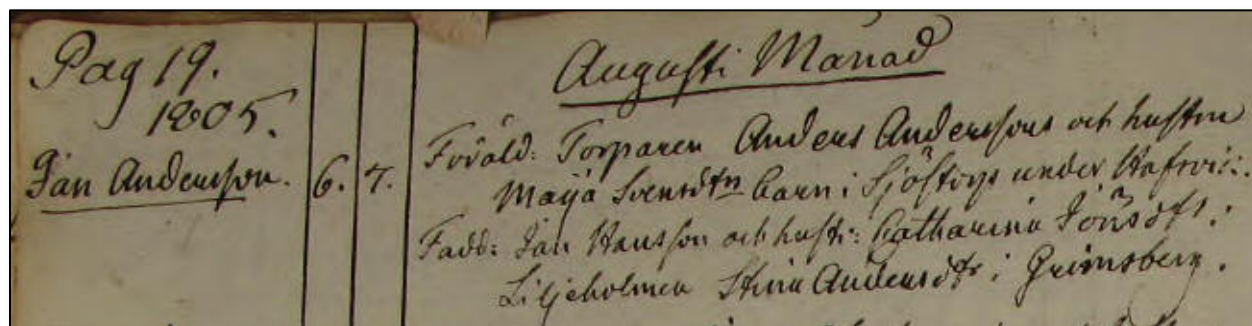 Pag 19.
1805.
Augusti Månad
Jan Andersson. 6. 7. Föräld: Torparen Anders Anderssons och hustrun
Maija Svensdtrs barn i Sjöstorp under
Fadd: Jan Hansson och hustr: Catharina Jönsdtr:
Liljeholmen Stina Andersdtr i Grimsberg.